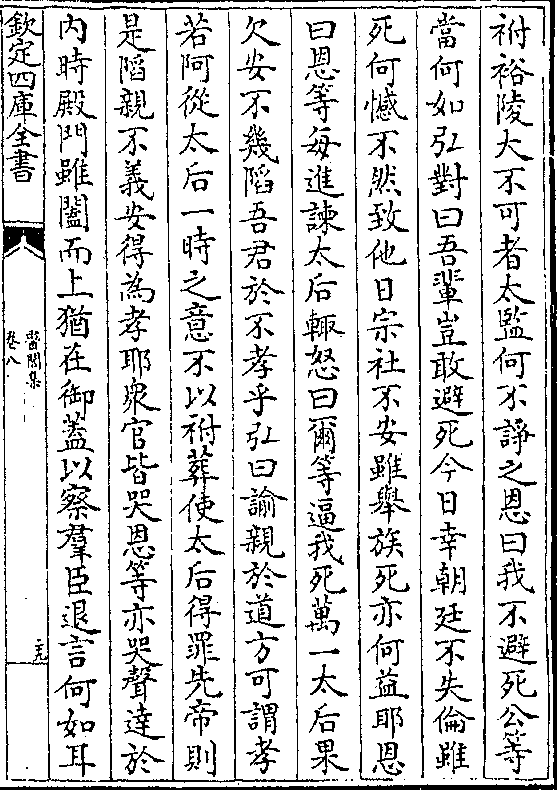 祔裕陵大不可者太監何不諍之恩曰我不避死公等
當何如弘對曰吾輩豈敢避死今日幸朝廷不失倫雖
死何憾不然致他日宗社不安雖舉族死亦何益耶恩
曰恩等每進諫太后輙怒曰爾等逼我死萬一太后果
欠安不幾䧟吾君於不孝乎弘曰諭親於道方可謂孝
若阿從太后一時之意不以祔葬使太后得罪先帝則
是䧟親不義安得為孝耶衆官皆哭恩等亦哭聲達於
内時殿門雖闔而上猶在御蓋以察羣臣退言何如耳
欽定四庫全書
卷八